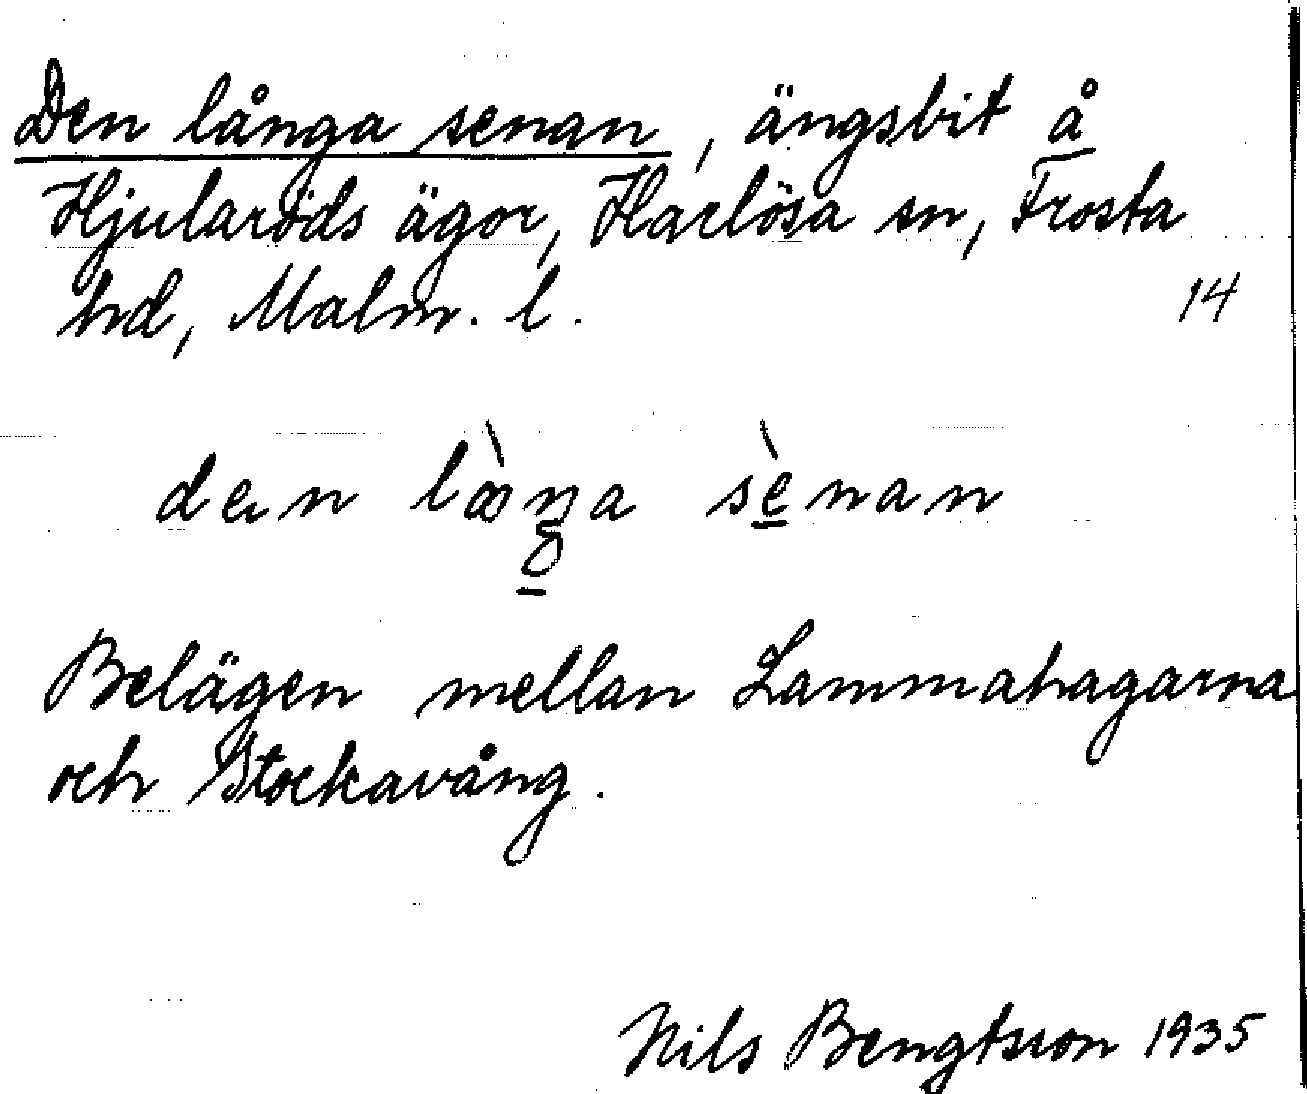 Den långa senan, ängsbit å
Hjularöds ägor, Harlösa sn, Frosta
hd, Malm. l. 14
den làŋa sènan
Belägen mellan Lammahagarna
och Stockavång.
Nils Bengtsson 1935